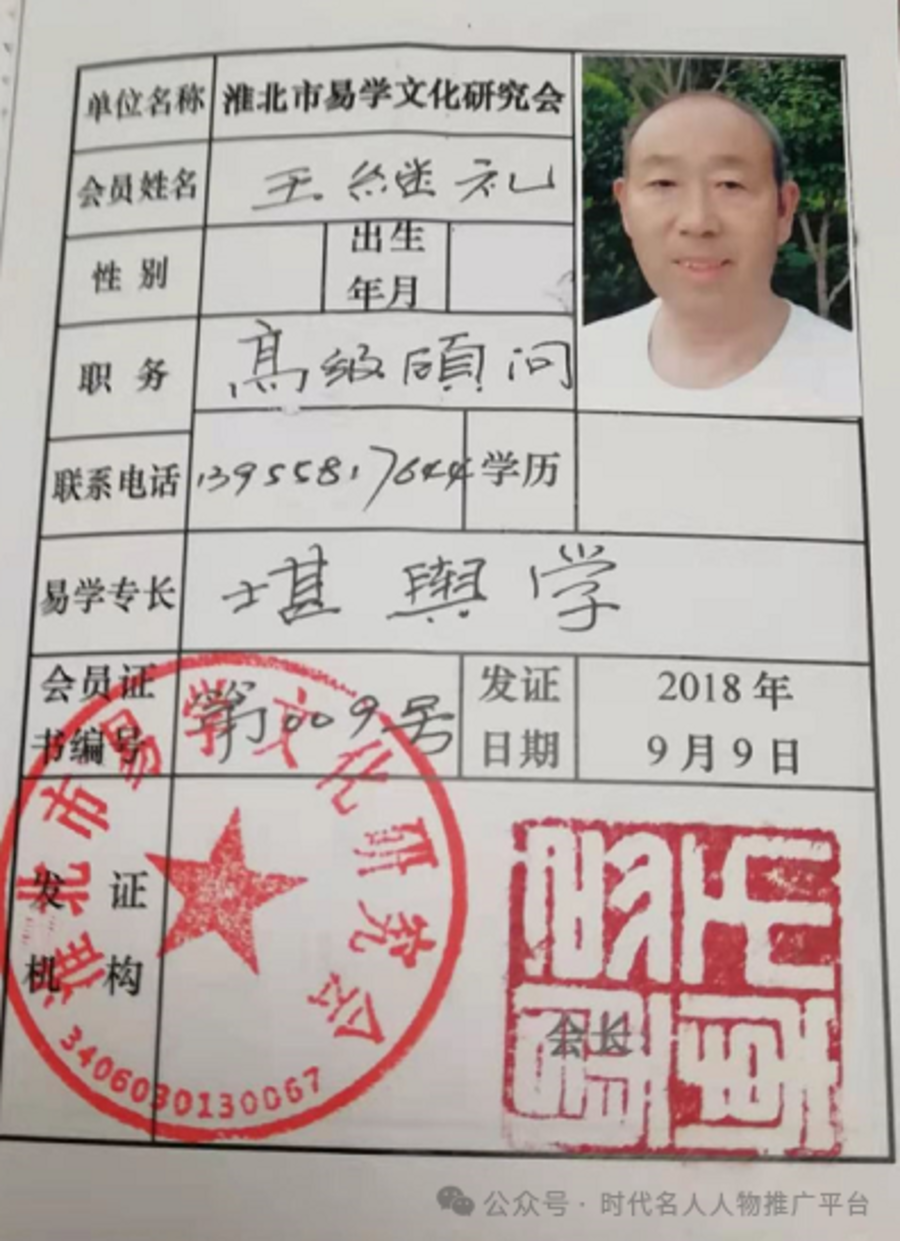 单位名称 淮北市易学文化研究会
会员姓名 王继礼
性别 出生年月
职务 高级顾问
联系电话 13955817644 学历
易学专长 堪舆学
会员证书编号 第009号 发证日期 2018年9月9日
发证机构
淮北市易学文化研究会
3406030130067
会长
公众号·时代名人人物推广平台